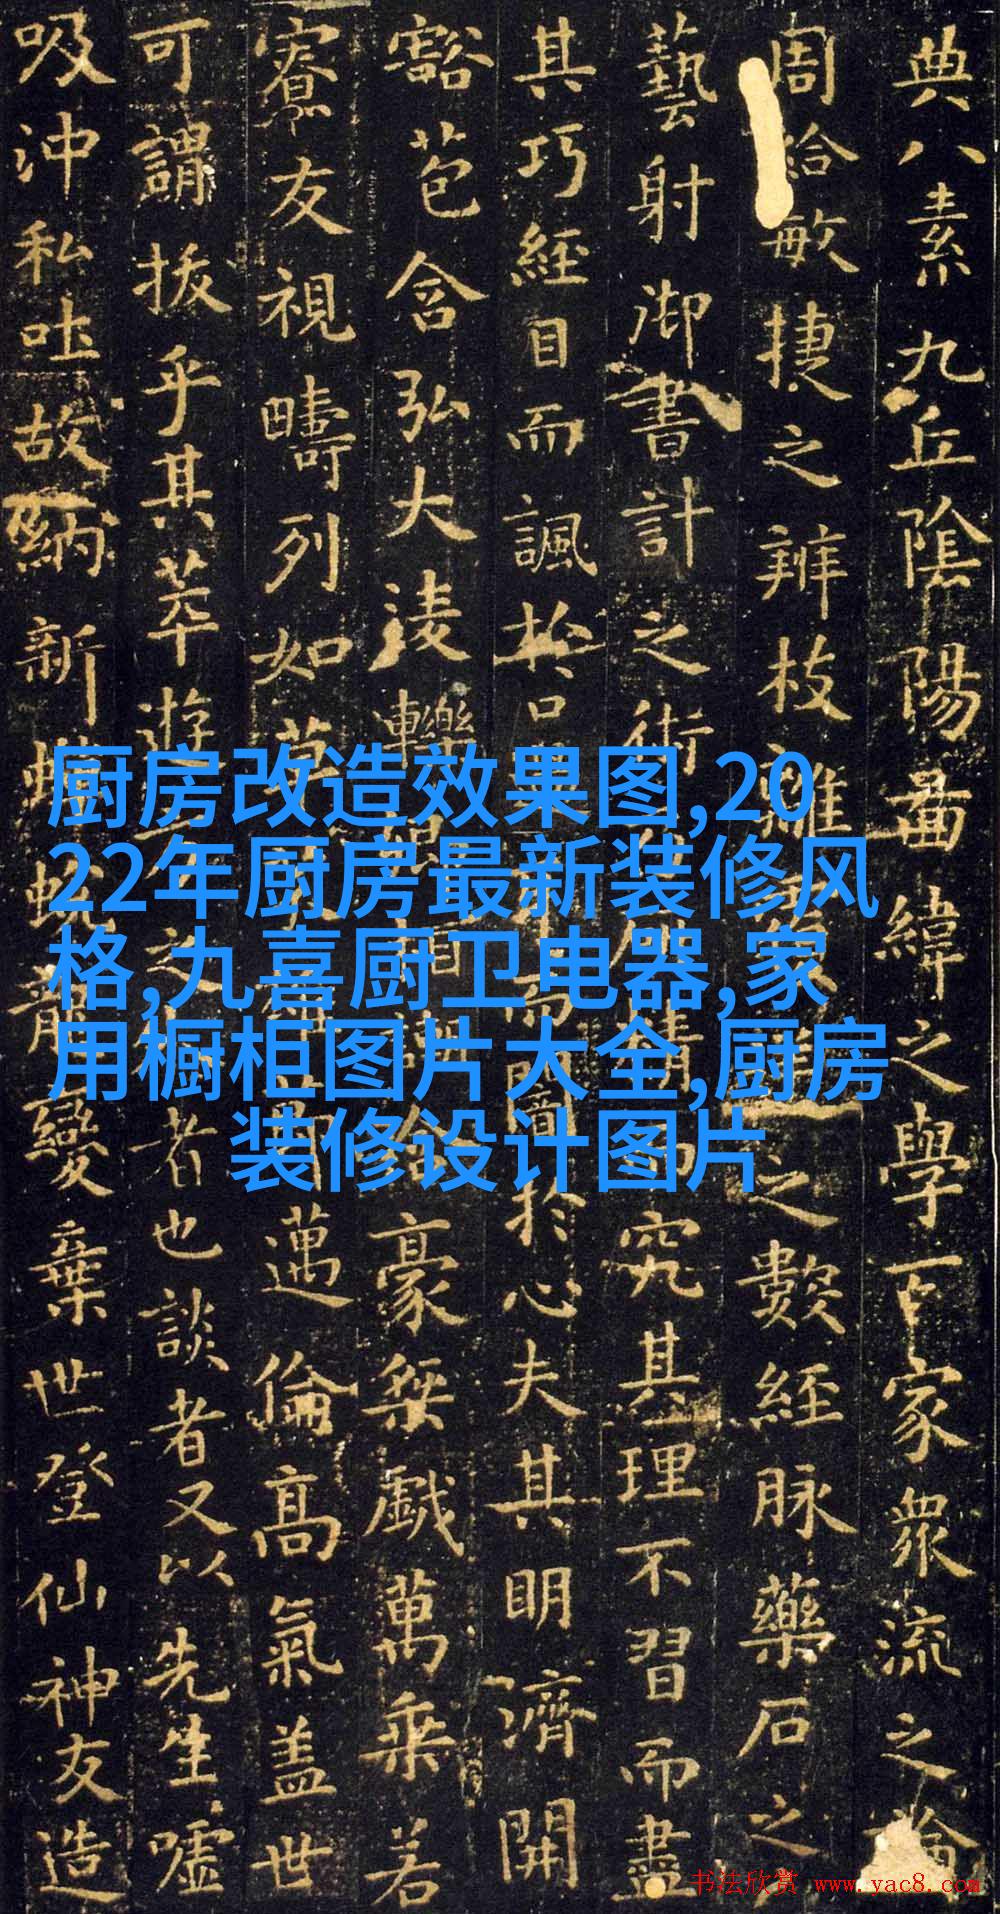 典八素九丘陰陽圖緯之學百家衆流之論
周給敏捷之辨枝離之數經脉藥石之
藝射御書計之術而究其理不習而盡
其巧經目而諷於口而闇於心夫其明濟開
豁苞含弘大淩轢相豪桀戯萬乘若
寮友視疇列如草邁倫髙氣蓋世
可謂拔乎其萃遊之者也談者又以先生噓
吸沖和吐故納新蛻龍變棄世登仙神友造
厨房改造效果图,20
22年厨房最新装修风
格,九喜厨卫电器,家
用橱柜图片大全,厨房
装修设计图片
书法欣赏 www.yac8.com